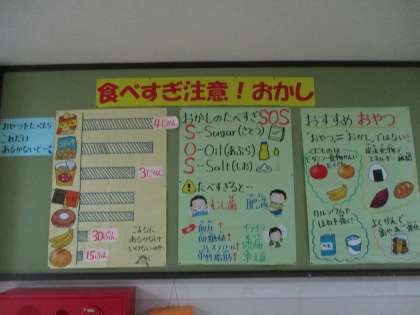 食べすぎ注意！おかし
おやつをたべたら
これだけ
あるかないと…
4じかん
3じかん
30ぷん
15ふん
こんなに
あるかないと
いけないの?
おかしのたべすぎSOS
S-Sugar(さとう)
O-Oil(あぶら)
S-Salt(しお)
たべすぎると…
むし歯
肥満
血圧↑
血糖値↑
コレステロール↑
中性脂肪↑
イライラ
頭痛
冷え症
おすすめ おやつ
"おやつ"="おかし"ではない!
くだものは
ビタミン・食物せんい
炭水化物で
エネルギー補給
カルシウムで
ほねを強く!